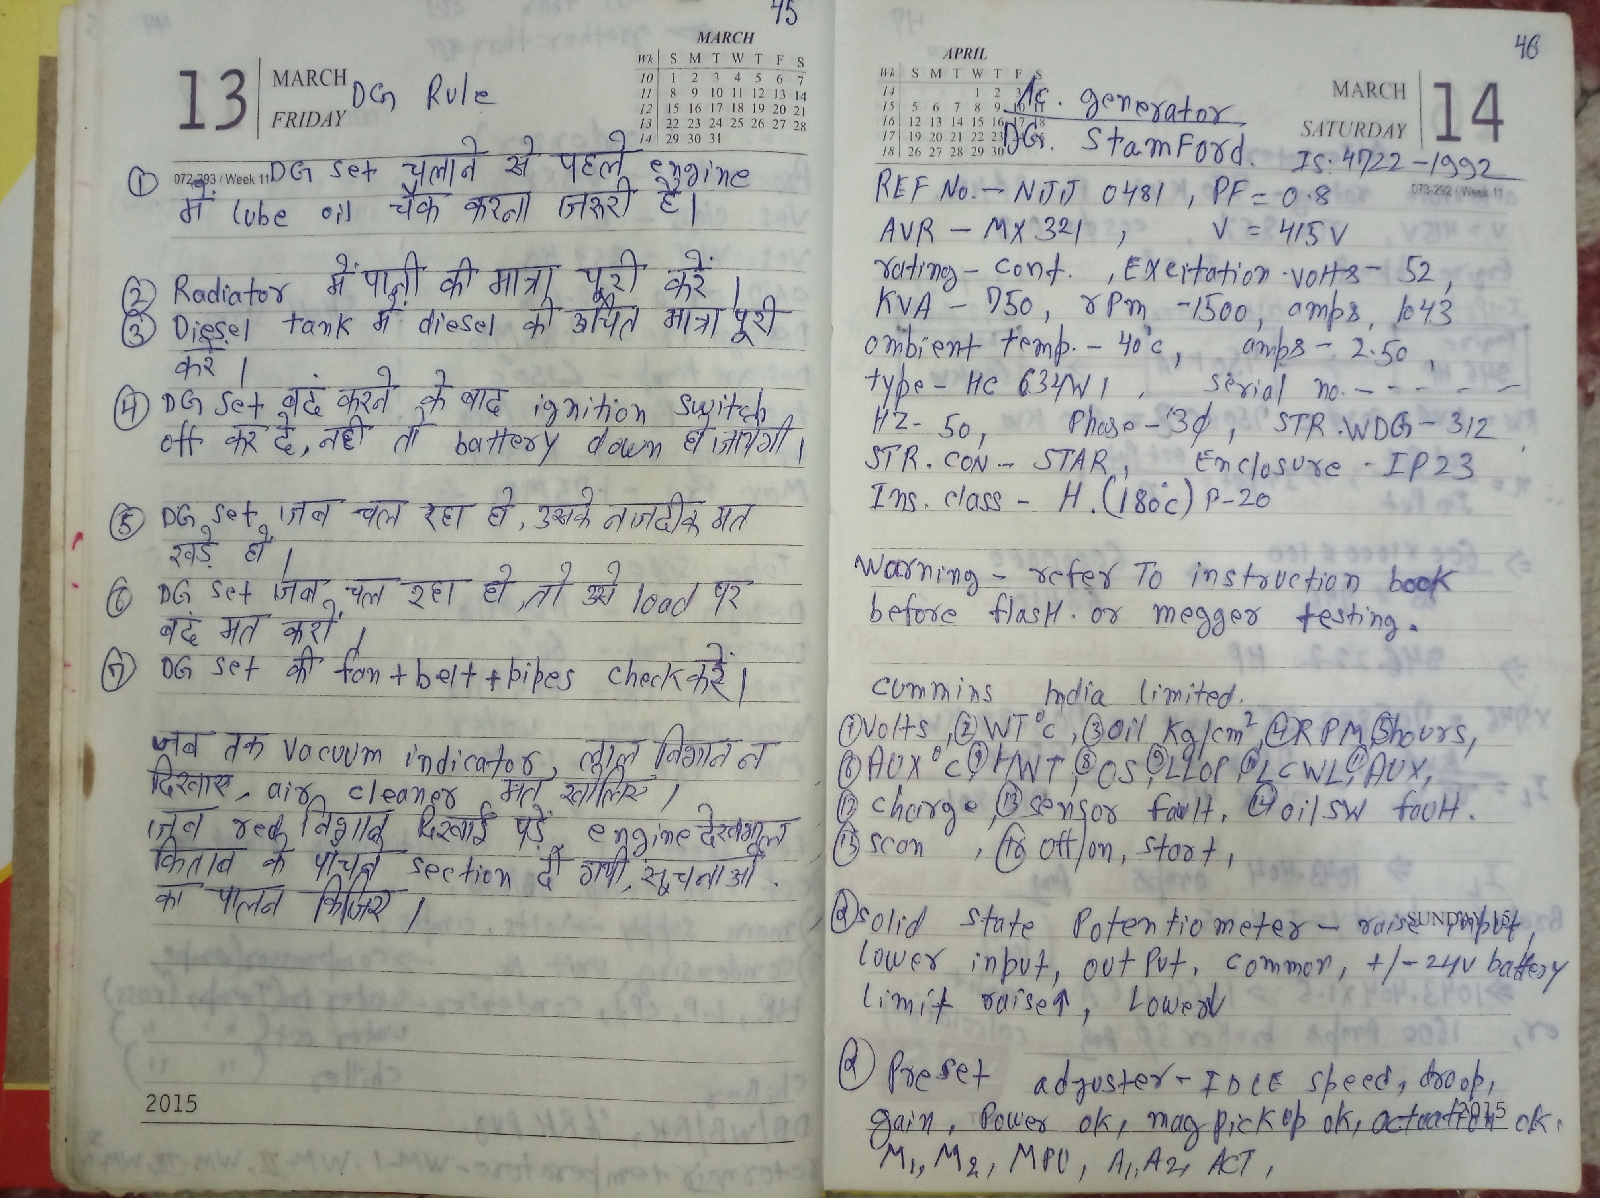 45
13 MARCH FRIDAY
DG Rule
MARCH
Wk S M T W T F S
10 1 2 3 4 5 6 7
11 8 9 10 11 12 13 14
12 15 16 17 18 19 20 21
13 22 23 24 25 26 27 28
14 29 30 31
072-293 / Week 11
① DG set चलाने से पहले engine
में lube oil चैक करना जरूरी है।
② Radiator में पानी की मात्रा पूरी करें।
③ Diesel tank में diesel की उचित मात्रा पूरी
करें।
④ DG set बदं करने के बाद ignition switch
off कर दे, नही तो battery down हो जायेगी।
⑤ DG set जब चल रहा हो, उसके नजदीक मत
खड़े हों।
⑥ DG set जब चल रहा हो, तो उसे load पर
बदं मत करों।
⑦ DG set की fan + belt + pipes check करें।
जब तक vacuum indicator, लाल निशान न
दिखाए, air cleaner मत खोलिए।
जब red निशान दिखाई पड़े, engine देखभाल
किताब के पांचवे section दी गयी, सूचनाओं
का पालन किजिए।
2015
46
APRIL
Wk S M T W T F S
14 1 2 3
15 5 6 7 8 9 10
16 12 13 14 15 16 17 18
17 19 20 21 22 23
18 26 27 28 29 30
MARCH SATURDAY 14
Ac. generator
DG. StamFord. IS: 4722-1992
073-292 / Week 11
REF No. - NJJ 0481, PF = 0.8
AVR - MX321, V = 415V
rating - cont., Excitation volts - 52,
KVA - 750, rpm - 1500, amps, 1043
ambient temp. - 40°c, amps - 2.50,
type - HC 634W1, serial no. - - - - -
HZ - 50, Phase - 3φ, STR.WDG - 312
STR. CON - STAR, Enclosure - IP23
Ins. class - H. (180°c) P-20
Warning - refer To instruction book
before flash. or megger testing.
cummins India limited.
① volts, ② WT°c, ③ Oil Kg/cm², ④ RPM, ⑤ hours,
⑥ AUX°c, ⑦ HWT, ⑧ OS, ⑨ LLOP, ⑩ LCWL, ⑪ AUX,
⑫ charge, ⑬ sensor fault, ⑭ oil sw fault.
⑮ scan, ⑯ off/on, start,
SUNDAY 15
② solid state Potentiometer - raise input,
lower input, output, common, +/- 24V battery
limit raise↑, Lower↓
② Preset adjuster - IDLE speed, droop,
gain, Power ok, mag pickup ok, actuator ok.
2015
M1, M2, MPU, A1, A2, ACT,